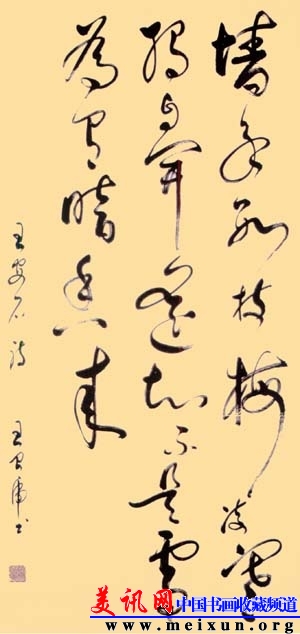 墙角数枝梅凌寒
独自開遥知不是雪
為有暗香来
王安石诗
王书
美讯网 中国书画收藏频道
www.meixun.org